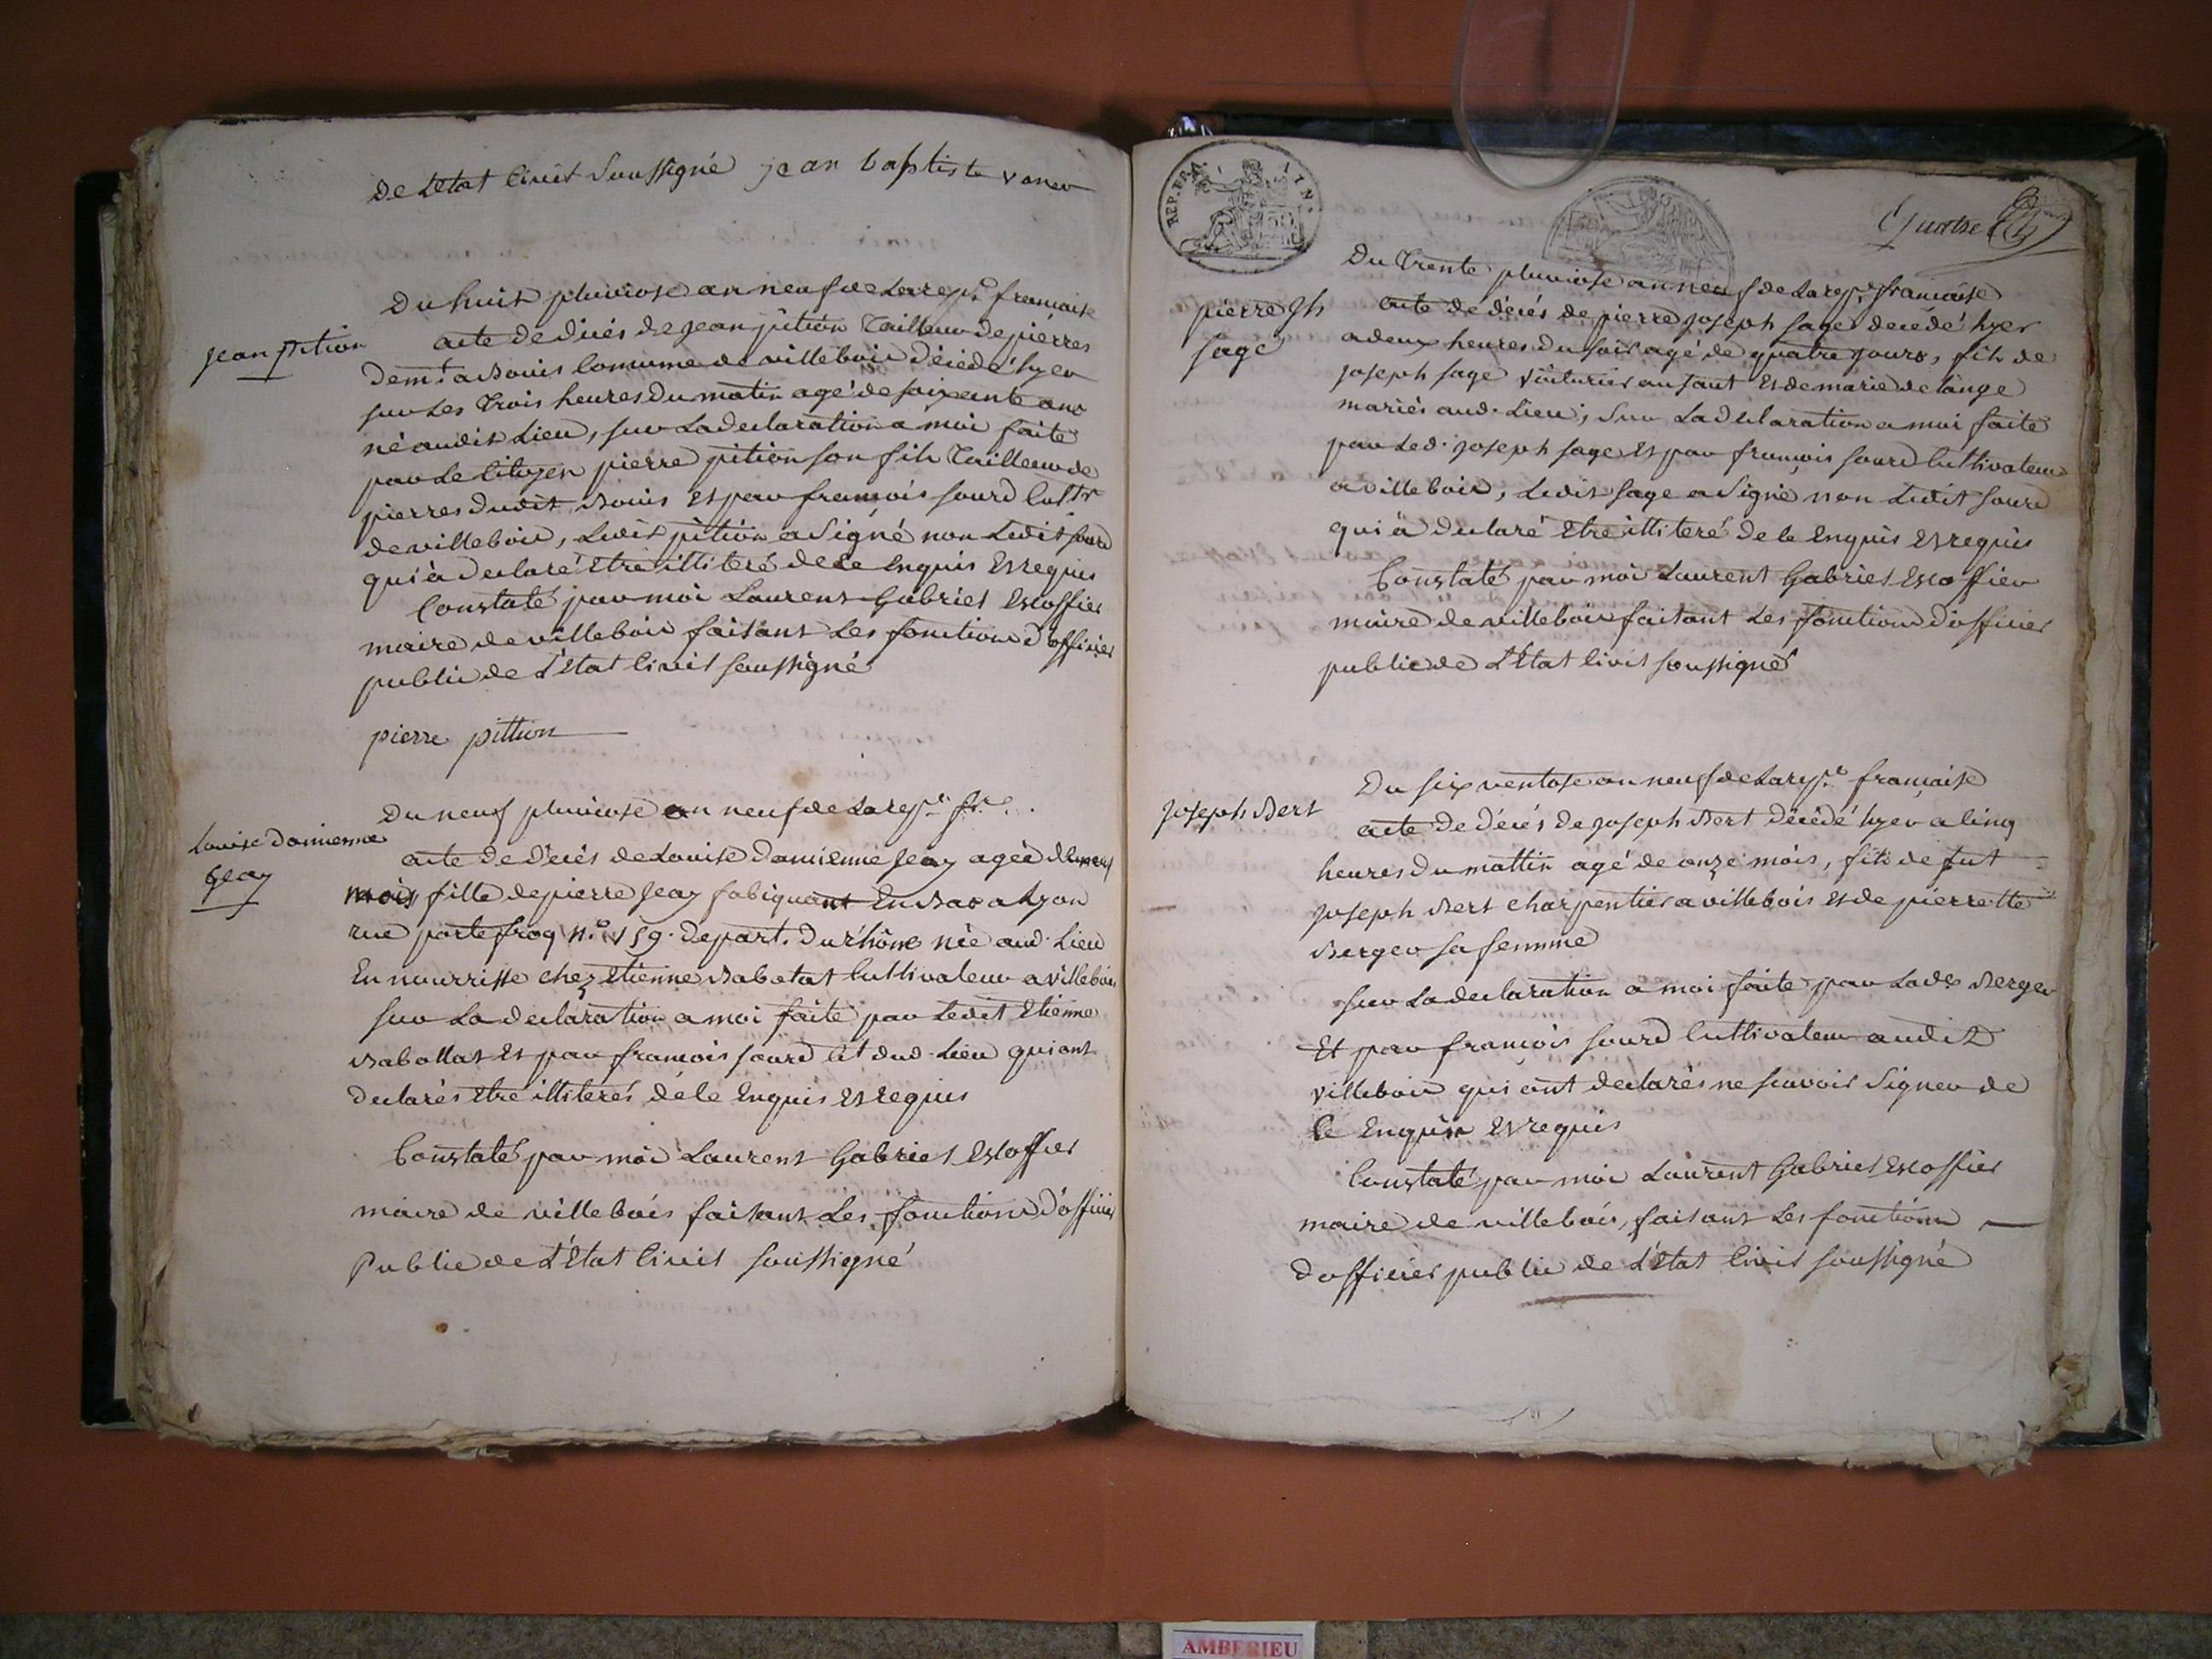 de L'Etat Civil Soussigné jean baptiste vaner
Du huit pluviose an neuf de La rep.e francaise
jean pition
acte de décés de jean pition Tailleur de pierres
dem.t a Bouis Commune de villebois décédé hyer
sur Les Trois heures du matin agé de soixante ans
né audit Lieu, sur La declaration a moi faite
par Le Citoyen pierre pition son fils Tailleur de
pierres dudit Bouis Et par françois sourd Cult.r
de villebois, Ledit pition a Signé non Ledit sourd
qui à declaré Etre illiteré de Ce Enquis Et requis
Constaté par moi Laurent Gabriel Escoffier
maire de villebois faisant Les fonctions d'officier
public de L'Etat Civil soussigné
pierre pittion
Du neuf pluviose an neuf de La rep.e fr.e
Louise damienne
Geay
acte de décés de Louise Damienne Geay ageé de neuf
mois fille de pierre Geay fabiquant En Bas a Lyon
rue portefroq n.o 159. depart. du rhône née aud. Lieu
En nourrisse chez Etienne Babolat Cultivateur a villebois
sur La declaration a moi faite par Ledit Etienne
Babollat Et par francois sourd C.t dud. Lieu qui ont
declarés Etre illiterés de Ce Enquis Et requis
Constaté par moi Laurent Gabriel Escoffier
maire de villebois faisant Les fonctions d'officier
Public de L'Etat Civil soussigné
REP. FRA.
Quatre
Du Trente pluviose an neuf de La rep.e francaise
pierre jh
sage
acte de décés de pierre joseph sage decédé hyer
a deux heures du soir agé de quatre jours, fils de
joseph sage voiturier au saut Et de marie de lange
mariés aud. Lieu, sur La declaration a moi faite
par Led. joseph sage Et par francois sourd Cultivateur
a villebois, Ledit sage a Signé non Ledit sourd
qui à declaré Etre illiteré de Ce Enquis Et requis
Constaté par moi Laurent Gabriel Escoffier
maire de villebois faisant Les fonctions d'officier
public de L'Etat Civil soussigné
Du six ventose an neuf de La rep.e francaise
joseph Bert
acte de décés de joseph Bert décédé hyer a Cinq
heures du mattin agé de onze mois, fils de fut
joseph Bert charpentier a villebois Et de pierrette
Berger sa femme
sur La declaration a moi faite par Lad.e Berger
Et par francois sourd Cultivateur audit
villebois qui ont declarés ne scavoir Signer de
Ce Enquis Et requis
Constaté par moi Laurent Gabriel Escoffier
maire de villebois, faisant Les fonctions
d'officier public de L'Etat Civil soussigné
AMBERIEU